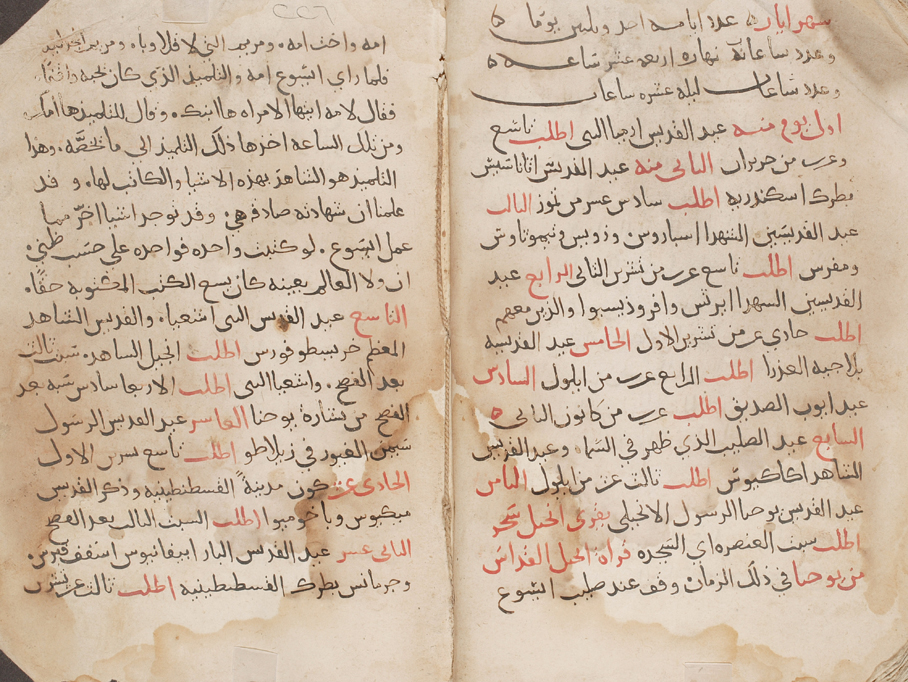 شهر ايار عدد ايامه احد وثلثين يومًا
وعدد ساعات نهاره اربع عشر ساعه
وعدد ساعات ليله عشره ساعات
اول يوم منه عيد القديس ارميا النبي اطلب تاسع
وعشرين من حزيران الثاني منه عيد القديس اثاناسيوس
بطرك اسكندريه اطلب سادس عشر من تموز الثالث
عيد القديسين الشهدا وتيموثاوس
ومفرس اطلب تاسع عشرين من تشرين الثاني الرابع عيد
القديسين الشهدا والذين معهم
اطلب حادي عشرين من تشرين الاول الخامس عيد القديسه
بلاجيه العذرا اطلب الرابع عشرين من ايلول السادس
عيد ايوب الصديق اطلب عشرين من كانون الثاني
السابع عيد الصليب الذي ظهر في السماء وعيد القديس
الشاهد اكاكيوس اطلب ثالث عشرين من ايلول الثامن
عيد القديس يوحنا الرسول الانجيلي يقرى انجيل سحر
اطلب سبت العنصره اي السجده قراة انجيل القداس
من يوحنا في ذلك الزمان وقف عند صليب اليسوع
٢٢٦
امه واخت امه ومريم التي لاقلاوبا ومريم المجدليه
فلما راي اليسوع امه والتلميذ الذي كان يحبه واقفًا
فقال لامه ايتها الامراه ها ابنك وقال للتلميذ ها امك
ومن تلك الساعه اخذها ذلك التلميذ الي ما يخصه وهذا
التلميذ هو الشاهد بهذه الاشيا والكاتب لها وقد
علمنا ان شهادته صادقه هي وقد توجد اشيا اخر مما
عمل اليسوع لو كتبت واحده فواحده علي حسب ظني
ان ولا العالم بعينه كان يسع الكتب المكتوبه حقًا
التاسع عيد القديس النبي اشعيا والقديس الشاهد
المعظم خريسطوفورس اطلب انجيل الشاهد سبت ثالث
بعد الفصح واشعيا النبي اطلب الاربعا سادس سبه بعد
الفصح من بشارة يوحنا العاشر عيد القديس الرسول
سيمن الغيور في زيلاطو اطلب تاسع تشرين الاول
الحادي عشر كون مدينة القسطنطينيه وذكر القديس
ميكيوس وباخوميوا اطلب السبت الثالث بعد الفصح
الثاني عشر عيد القديس البار ابيفانيوس اسقف قبرس
وجرمانس بطرك القسطنطينيه اطلب ثالث عشر تشرين